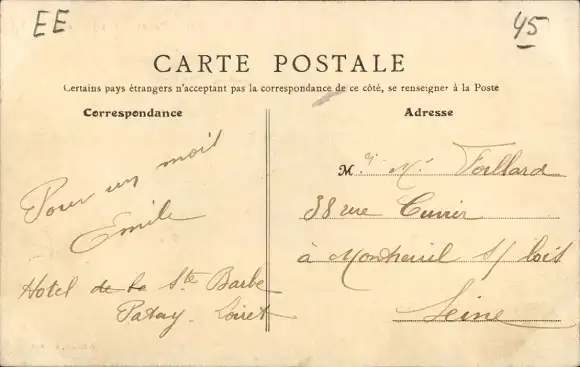 EE
45
CARTE POSTALE
Certains pays étrangers n'acceptant pas la correspondance de ce côté, se renseigner à la Poste
Correspondance
Adresse
Pour un mois
Emile
Hotel de la Ste Barbe
Patay. Loiret
M. M. Foillard
38 rue Cuvier
à Montreuil s/ bois
Seine